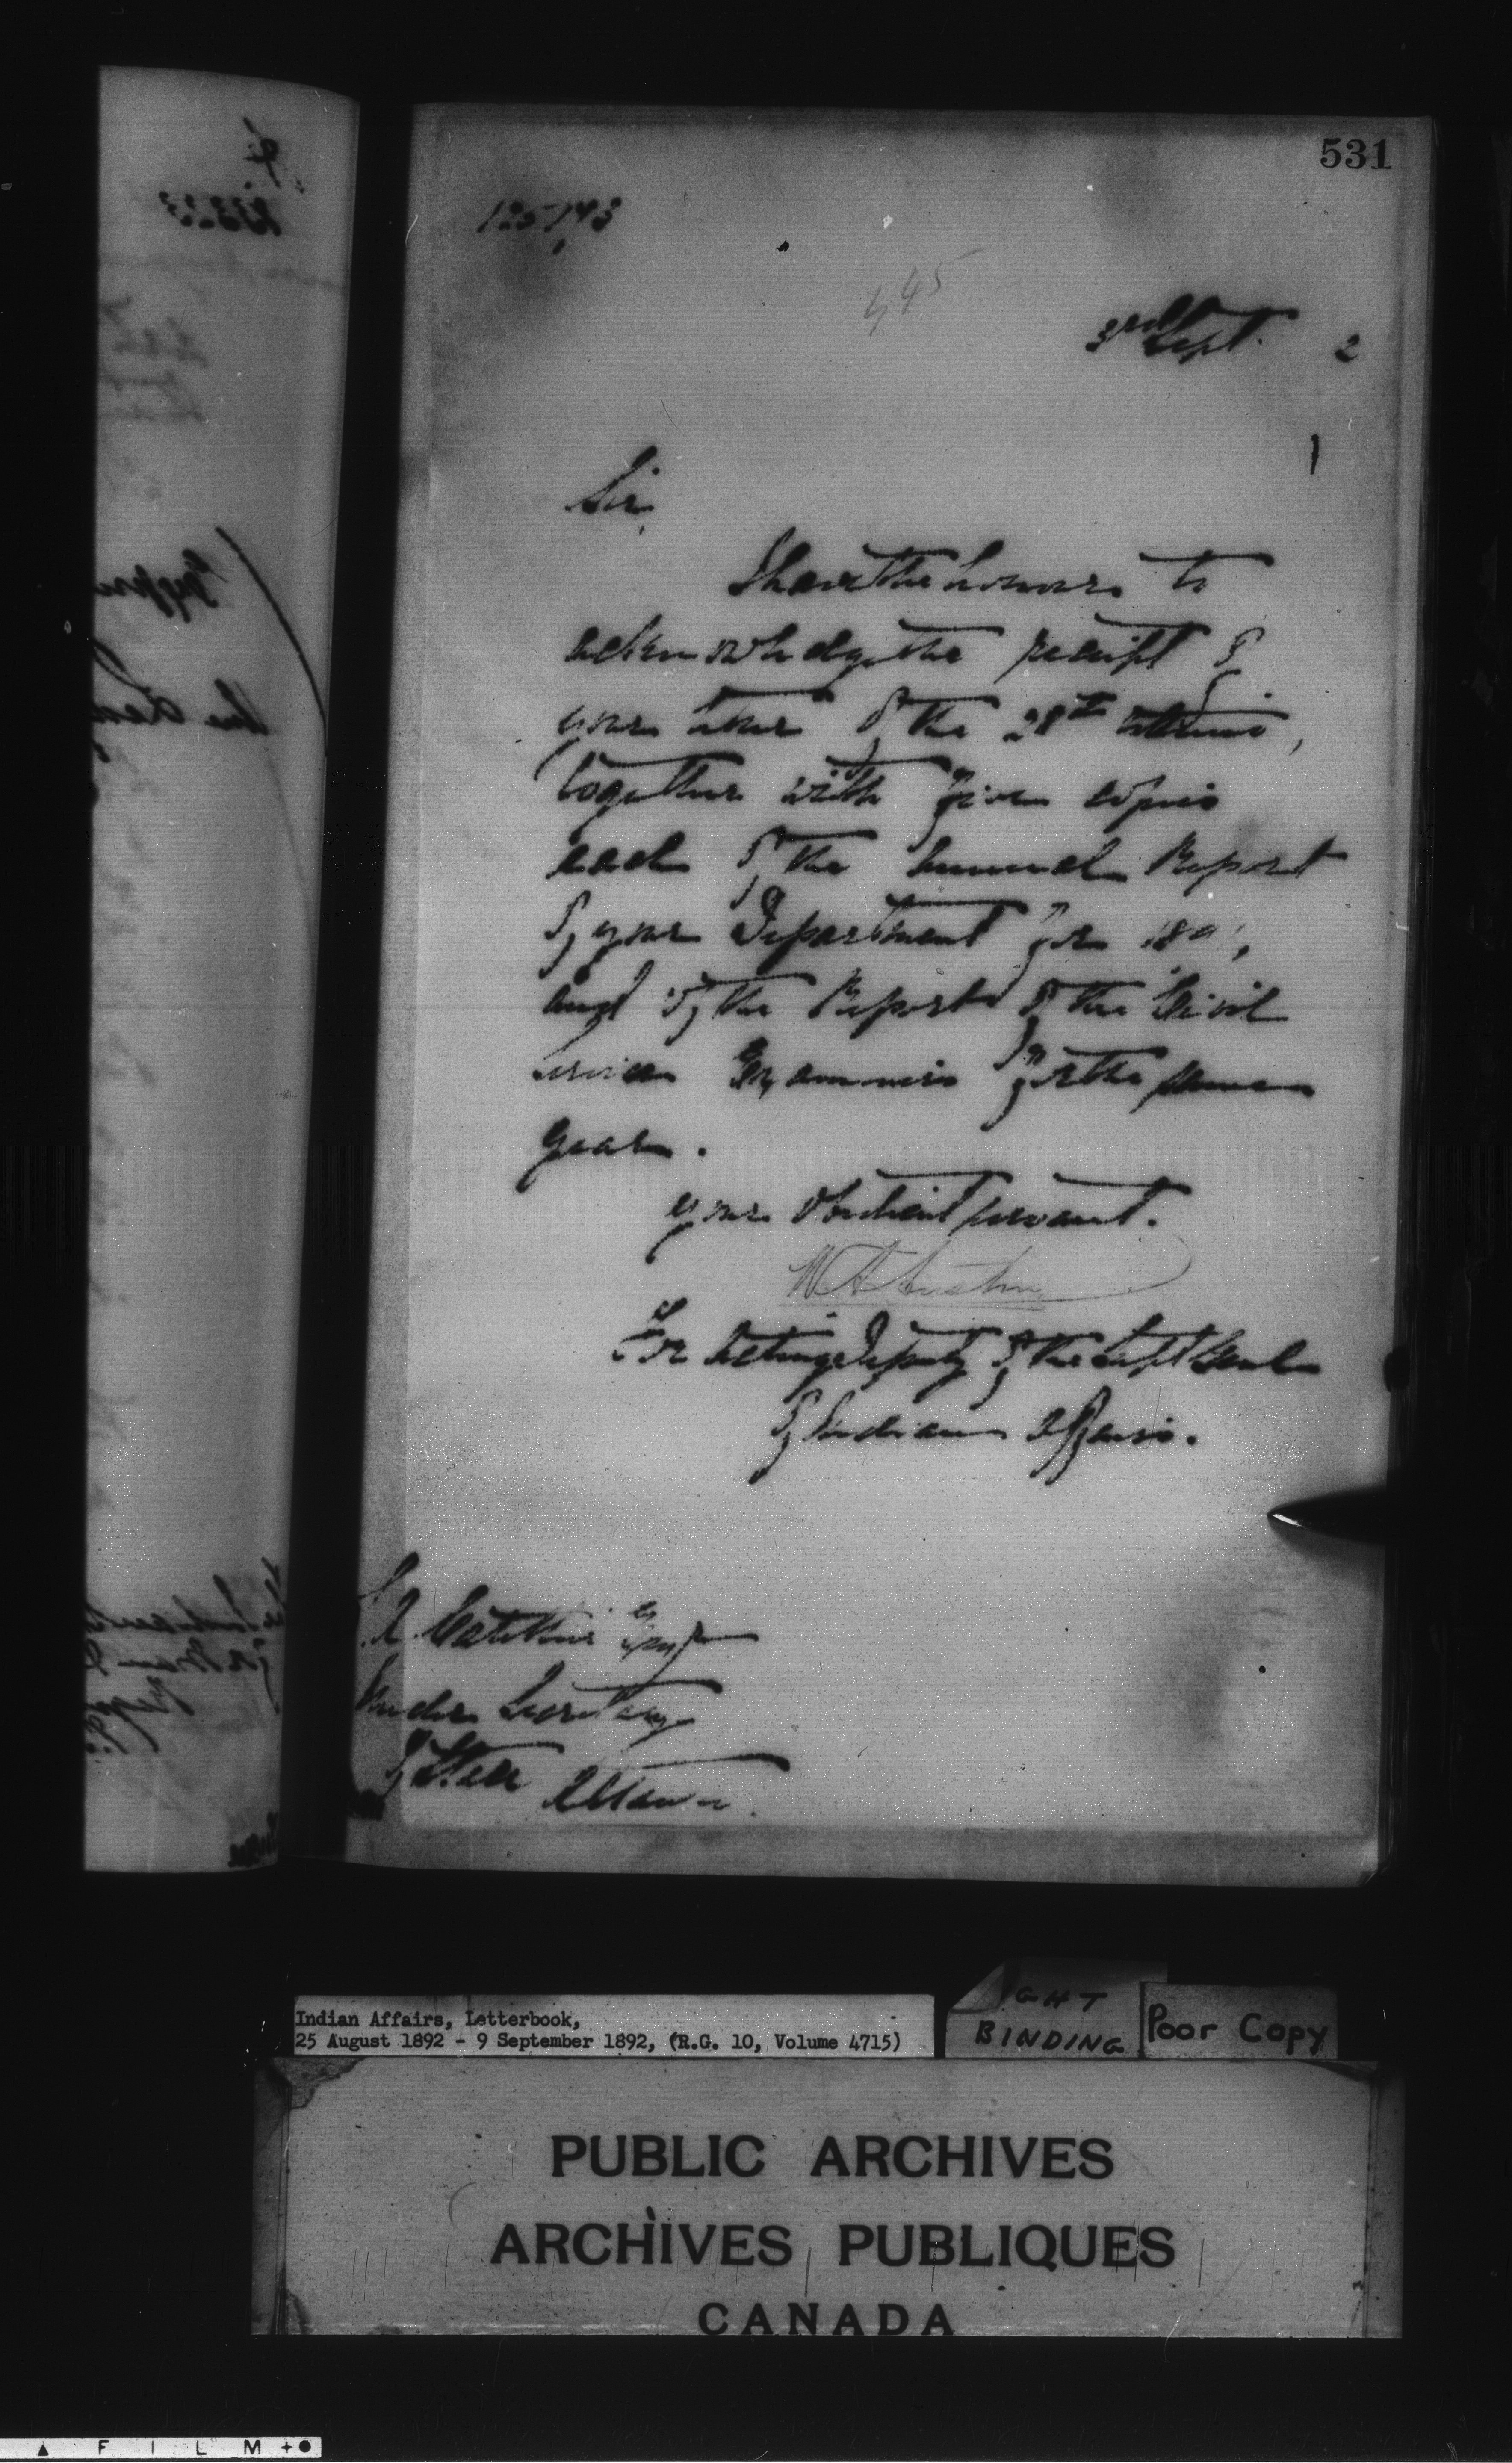 531
125143
445
3rd Sept. 2
Sir,
I have the honour to
acknowledge the receipt of
your letter of the 28th ultimo,
together with five copies
each of the Annual Report
of your Department for 189
and of the Report of the Civil
Service Examiners for the same
year.
Your obedient servant.
For Acting Deputy of the Supt Genl
of Indian Affairs.
L.A. Catellier Esqr
Under Secretary
of State Ottawa.
Indian Affairs, Letterbook,
25 August 1892 - 9 September 1892, (R.G. 10, Volume 4715)
GHT
BINDING
Poor Copy
PUBLIC ARCHIVES
ARCHIVES PUBLIQUES
CANADA
FILM